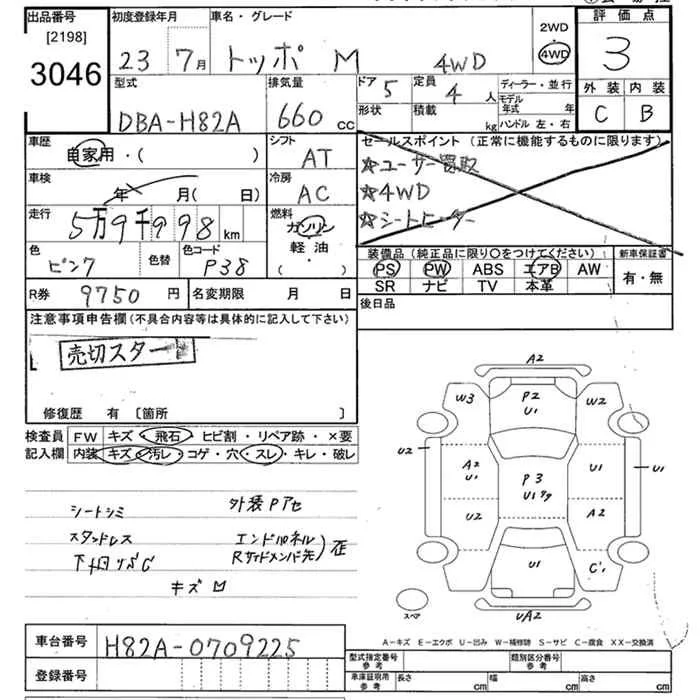 出品番号 初度登録年月 車名・グレード 2WD 4WD 評価点
[2198]
3046 23 7月 トッポ M 4WD 3
型式 排気量 ドア 5 定員 4人 ディーラー・並行 外装 内装
DBA-H82A 660cc 形状 積載 kg モデル年式 年 C B
ハンドル 左・右
車歴 シフト セールスポイント (正常に機能するものに限ります)
自家用・( ) AT ☆ユーザー買取
車検 冷房 ☆4WD
年 月(日) AC ☆シートヒーター
走行 5万9千998km 燃料 ガソリン
軽油
・( )
色 ピンク 色替 色コード P38 装備品(純正品に限り○をつけてください) 新車保証書
PS PW ABS エアB AW 有・無
SR ナビ TV 本革
R券 9750円 名変期限 月 日 後日品
注意事項申告欄(不具合内容等は具体的に記入して下さい)
売切スタート
修復歴 有 〔箇所 〕
検査員 FW キズ・飛石・ヒビ割・リペア跡・×要
記入欄 内装 キズ・汚レ・コゲ・穴・スレ・キレ・破レ
シートシミ 外装Pアセ
スタッドレス エンドパネル
下廻りサビC Rサイドメンバー先)歪
キズ凹
A2
W3 P2 U1 W2
U2 A2 U1 P3 U1 U1 U1
U2 A2
U1 C1
スペア UA2
A-キズ E-エクボ U-凹み W-補修跡 S-サビ C-腐食 XX-交換済
車台番号 H82A-0709225 型式指定番号 参考 類別区分番号 参考
登録番号 車庫証明用 参考 長さ cm 幅 cm 高さ cm